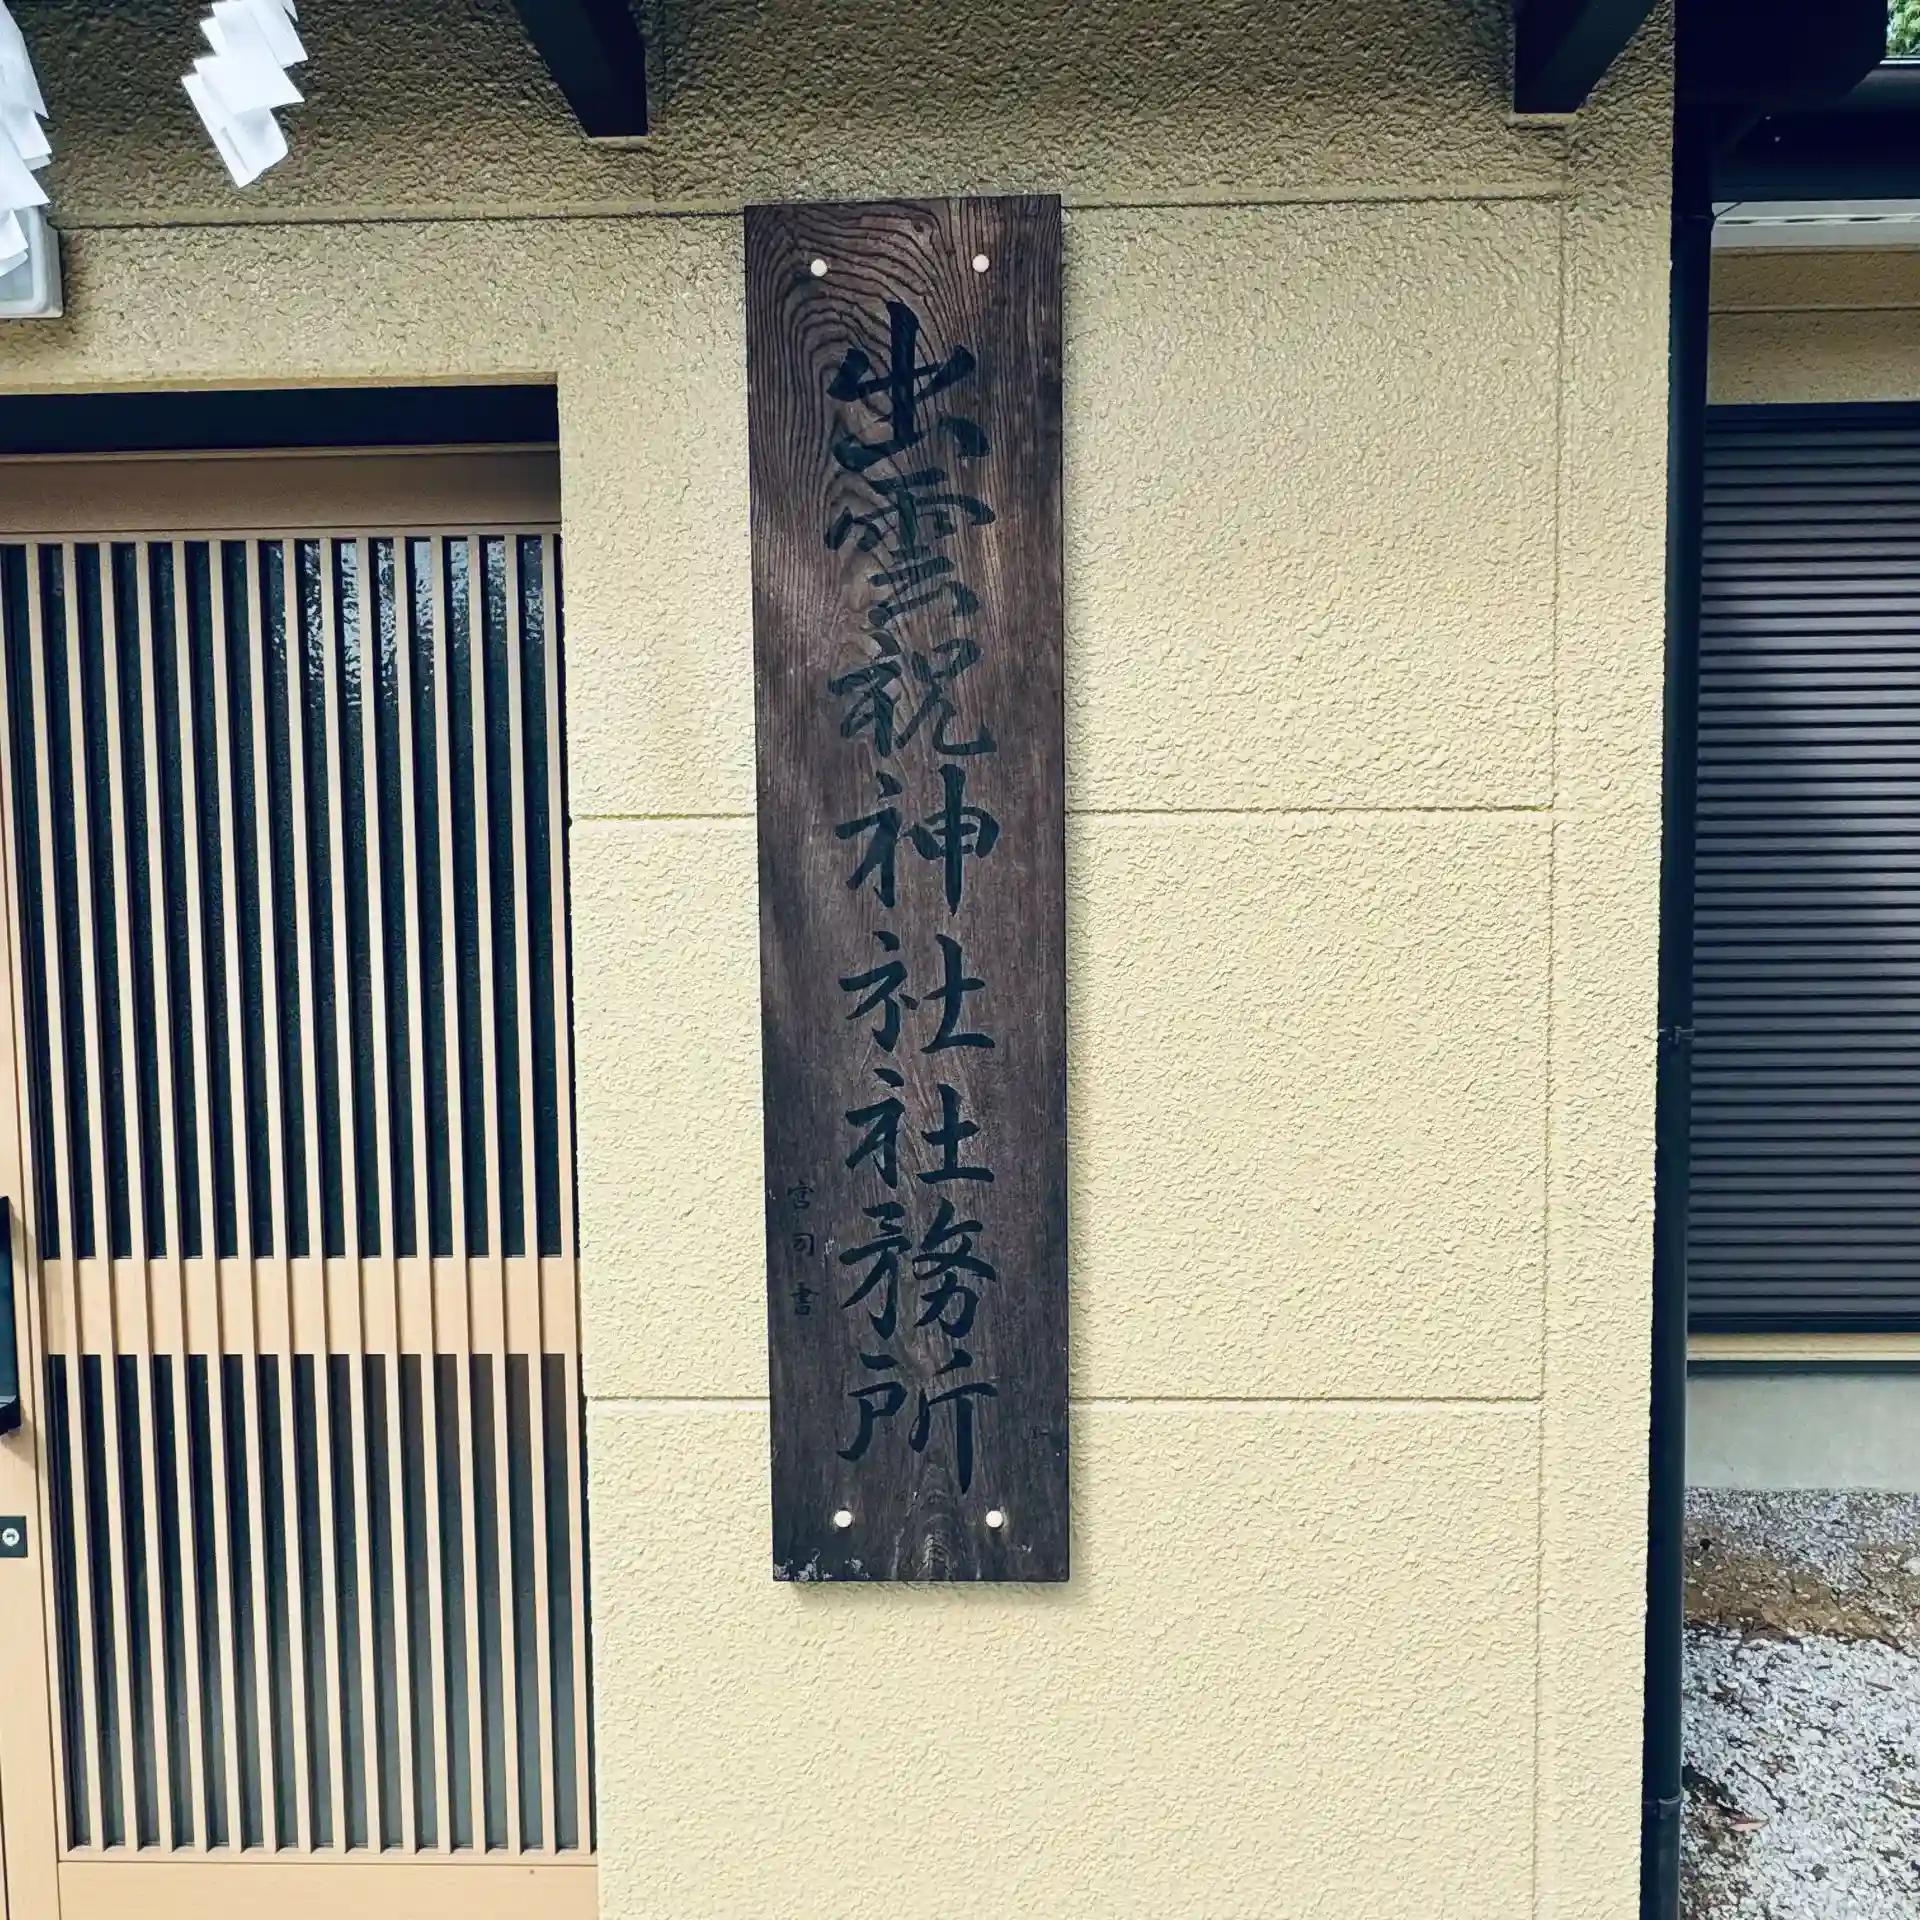 出雲祝神社社務所
宮司書